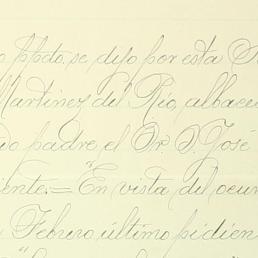 ppdo. se dijo por esta S
Martinez del Rio, albace
do padre el Sr. D. José
iente. = "En vista del ocur
Febrero último pidien